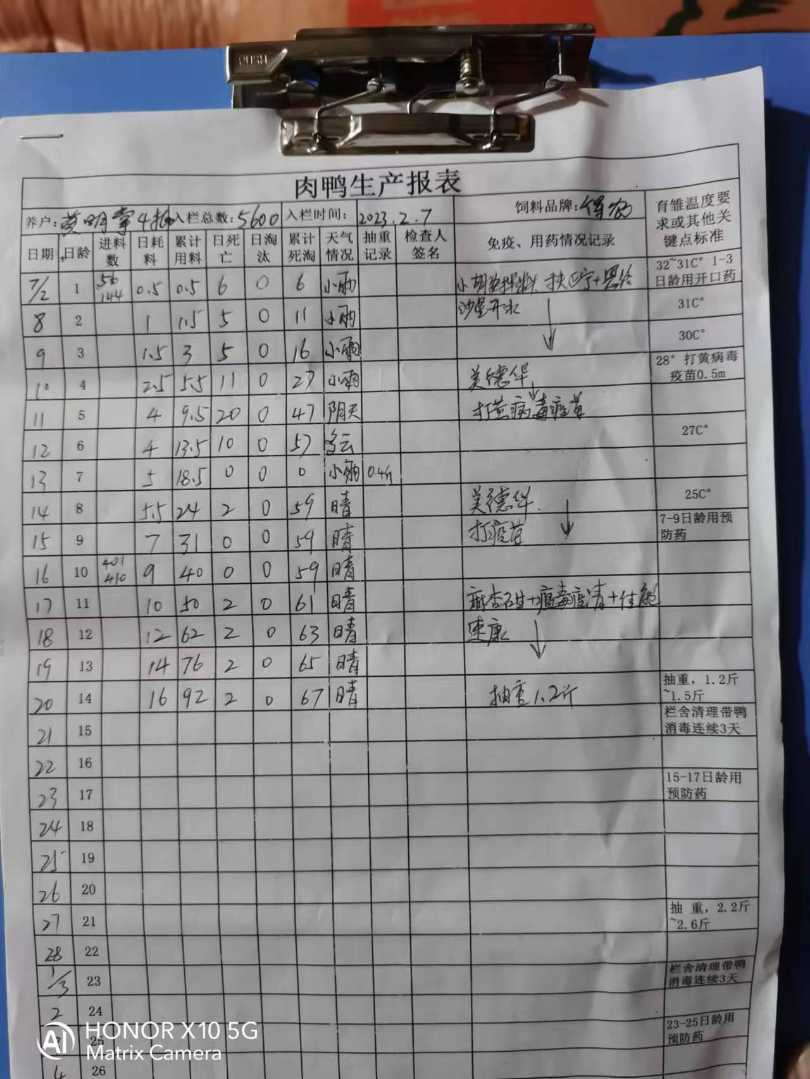 PUSH
肉鸭生产报表
养户: 4批 入栏总数:5600 入栏时间: 2023.2.7 饲料品牌: 育雏温度要求或其他关键点标准
日期 日龄 进料数 日耗料 累计用料 日死亡 日淘汰 累计死淘 天气情况 抽重记录 检查人签名 免疫、用药情况记录
7/2 1 56 144 0.5 0.5 6 0 6 小雨 32~31C° 1-3日龄用开口药
8 2 1 1.5 5 0 11 小雨 开水 31C°
9 3 1.5 3 5 0 16 小雨 30C°
10 4 2.5 5.5 11 0 27 小雨 美德华 28° 打黄病毒疫苗0.5m
11 5 4 9.5 20 0 47 阴天 打黄病毒疫苗
12 6 4 13.5 10 0 57 多云 27C°
13 7 5 18.5 0 0 0 小雨 0.4斤
14 8 5.5 24 2 0 59 晴 美德华 25C°
15 9 7 31 0 0 59 晴 打疫苗 7-9日龄用预防药
16 10 401 410 9 40 0 0 59 晴
17 11 10 50 2 0 61 晴
18 12 12 62 2 0 63 晴 速康
19 13 14 76 2 0 65 晴
20 14 16 92 2 0 67 晴 抽重1.2斤 抽重，1.2斤~1.5斤
21 15 栏舍清理带鸭消毒连续3天
22 16
23 17 15-17日龄用预防药
24 18
25 19
26 20
27 21 抽 重，2.2斤~2.6斤
28 22
1/3 23 栏舍清理带鸭消毒连续3天
2 24
25 23-25日龄用预防药
4 26
AI HONOR X10 5G
Matrix Camera